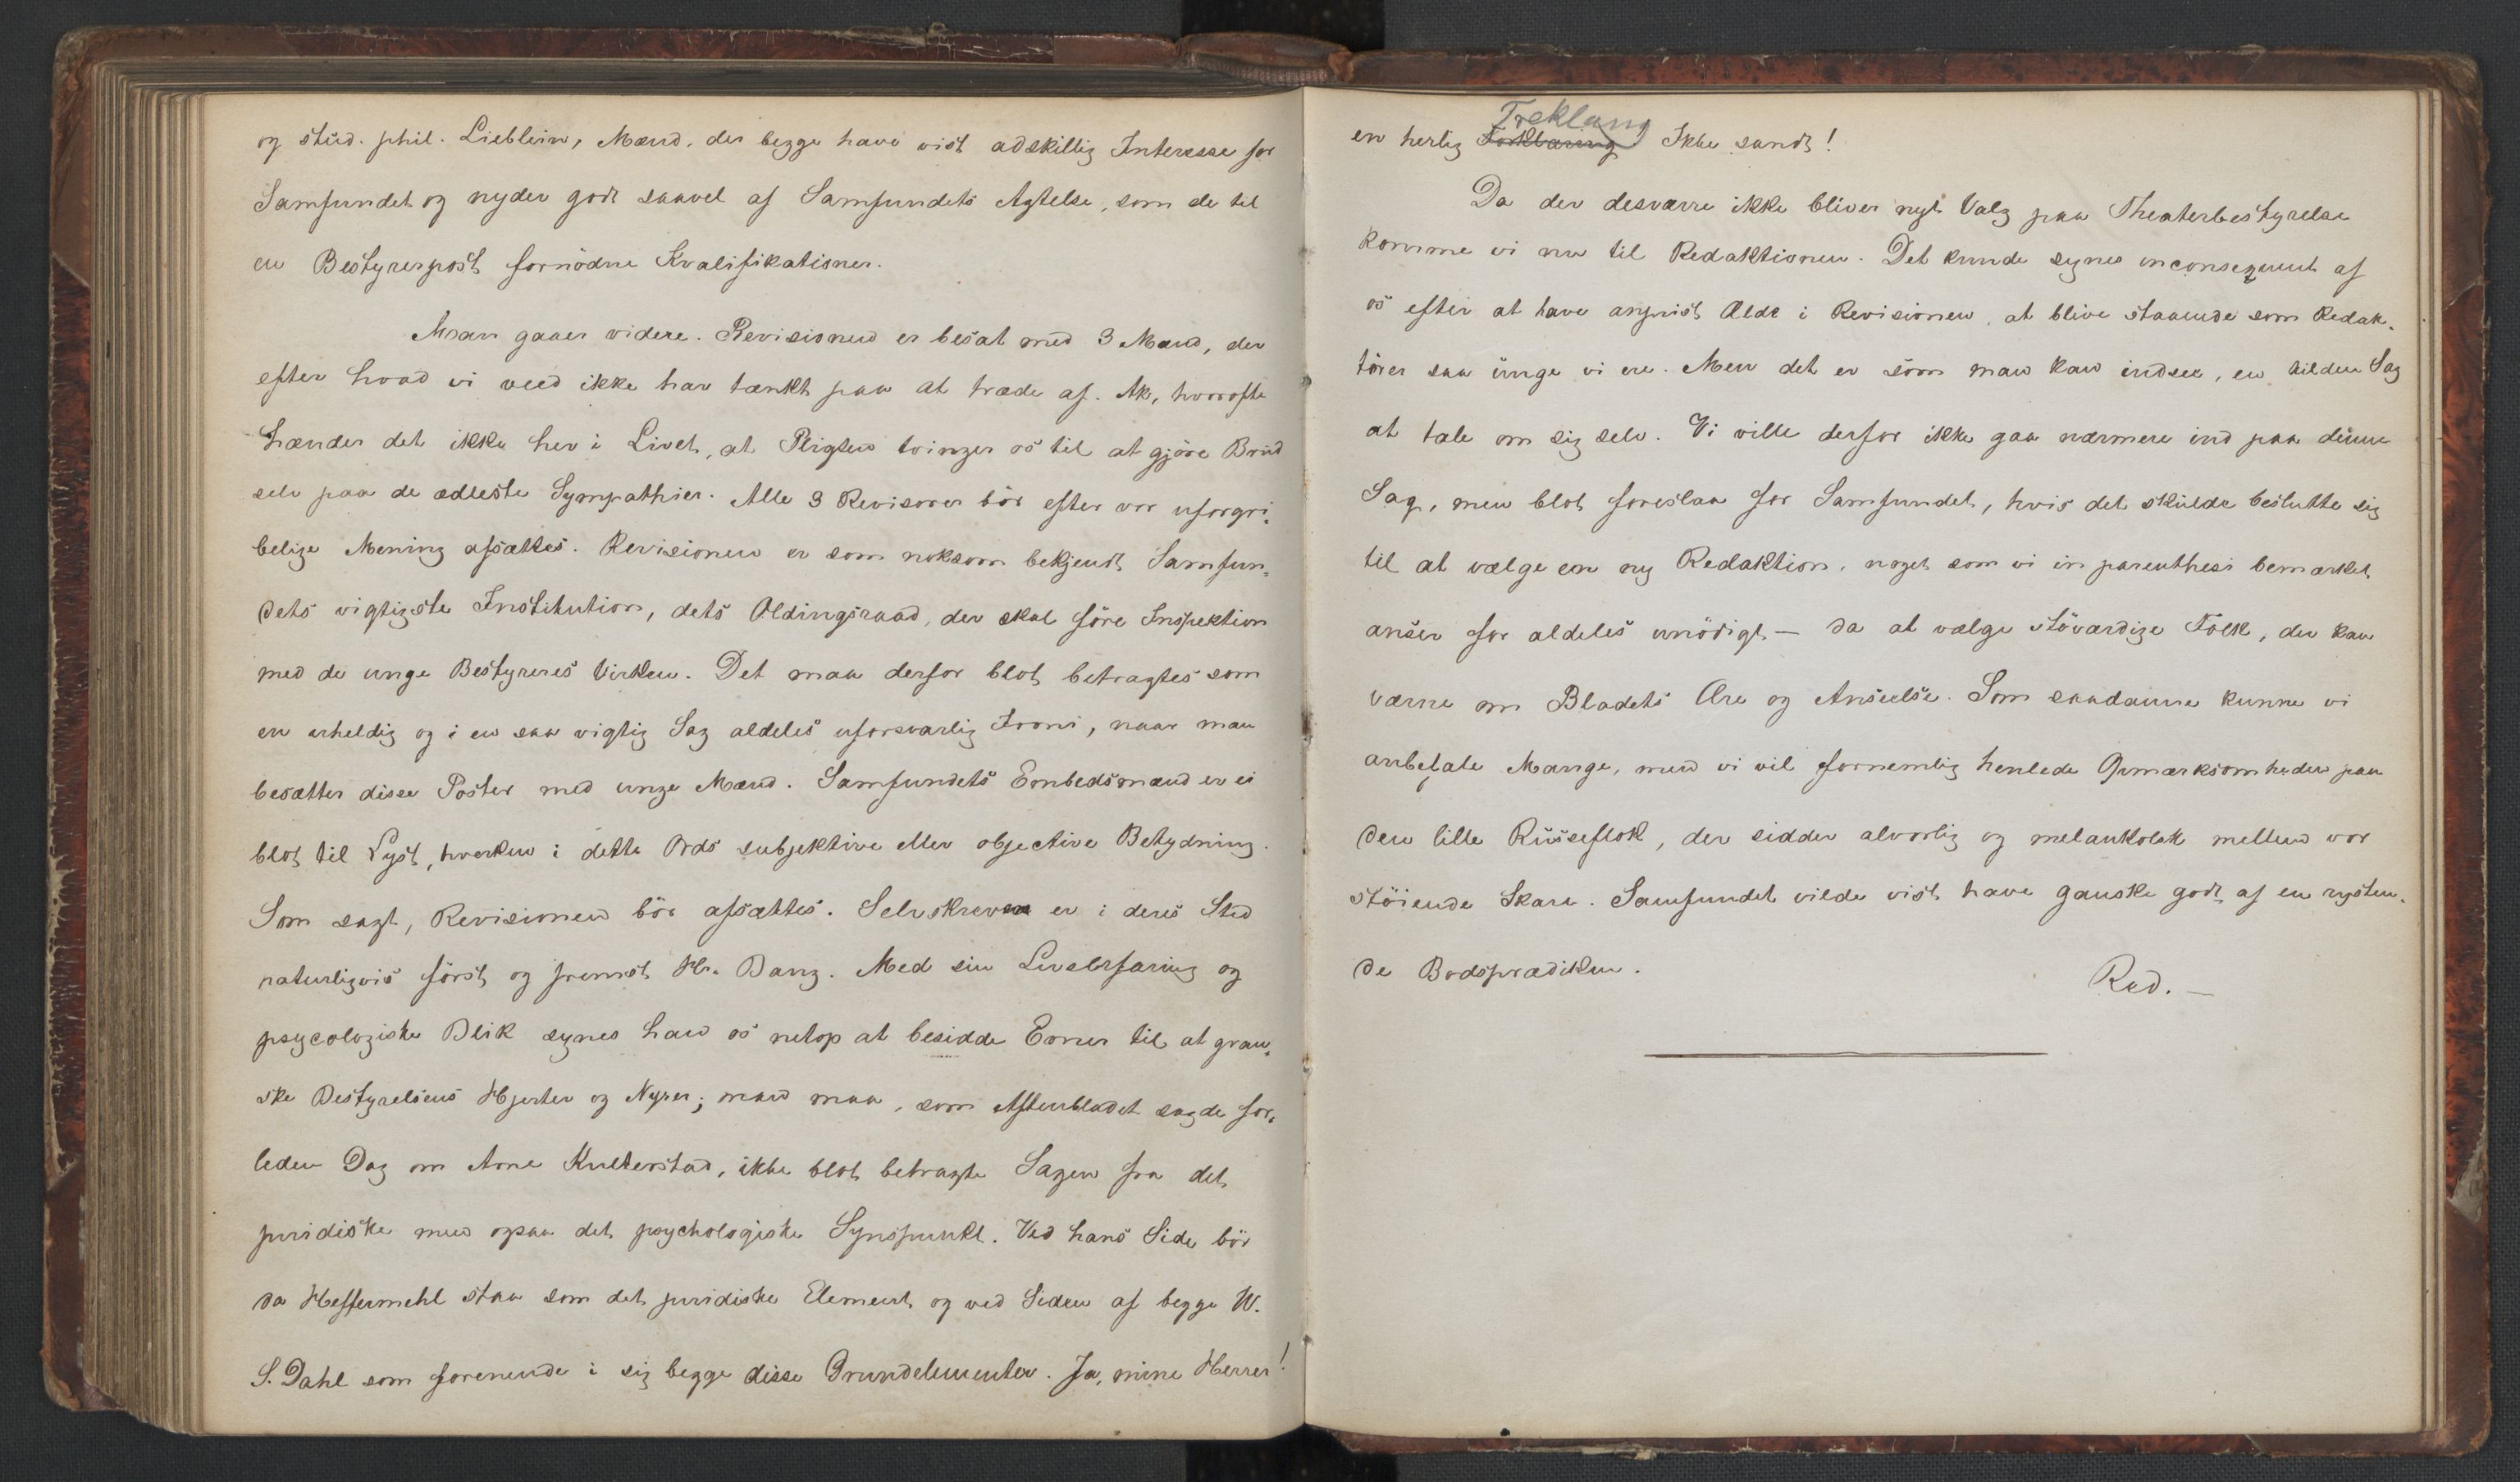 og stud. phil. Lieblein, Mænd, der begge have vist adskillig Interesse for
Samfundet og nyder godt saavel af Samfundets Agtelse, som de til
en Bestyrerpost fornödne Kvalifikationer.
Man gaaer videre. Revisionen er besat med 3 Mænd, der
efter hvad vi veed ikke har tænkt paa at træde af. Ak, hvorofte
hænder det ikke her i Livet, at Pligten tvinger os til at gjöre Brud
selv paa de ædleste Sympathier. Alle 3 Revisorer bör efter vor uforgri-
belige Mening afsættes. Revisionen er som noksom bekjendt Samfun-
dets vigtigste Institution, dets Oldingsraad, der skal före Inspektion
med de unge Bestyreres Virken. Det maa derfor blot betragtes som
en uheldig og i en saa vigtig Sag aldeles uforsvarlig Ironi, naar man
besætter disse Poster med unge Mænd. Samfundets Embedsmænd er ei
blot til Lyst, hverken i dette Ords subjektive eller objective Betydning.
Som sagt, Revisionen bör afsættes. Selvskreven er i deres Sted
naturligvis först og fremst Hr. Bang. Med sin Livserfaring og
psycologiske Blik synes han os netop at besidde Evner til at gran-
ske Bestyrelsens Hjerter og Nyrer; man maa, som Aftenbladet sagde for-
leden Dag om Arne Kulterstad, ikke blot betragte Sagen fra det
juridiske men ogsaa det psychologiske Synspunkt. Ved hans Side bör
da Heffermehl staa som det juridiske Element og ved Siden af begge W.
S. Dahl som forenende i sig begge disse Grundelementer. Ja, mine Herrer!
Treklang
en herlig Forklaring! Ikke sandt!
Da der desværre ikke bliver nyt Valg paa Theaterbestyrelse
komme vi nu til Redaktionen. Det kunde synes inconsequent af
os efter at have anprist Ælde i Revisionen, at blive staaende som Redak-
törer saa unge vi ere. Men det er som man kan indsee, en kilden Sag
at tale om sig selv. Vi ville derfor ikke gaa nærmere ind paa denne
Sag, men blot foreslaa for Samfundet, hvis det skulde beslutte sig
til at vælge en ny Redaktion, noget som vi in parenthesi bemærket
anser for aldeles unödigt — da at vælge stöværdige Folk, der kan
værne om Bladets Ære og Anseelse. Som saadanne kunne vi
anbefale Mange, men vi vil fornemlig henlede Opmærksomheden paa
den lille Russeflok, der sidder alvorlig og melankolsk mellem vor
stöiende Skare. Samfundet vilde vist have ganske godt af en rysten-
de Bodsprædiken.
Red. —